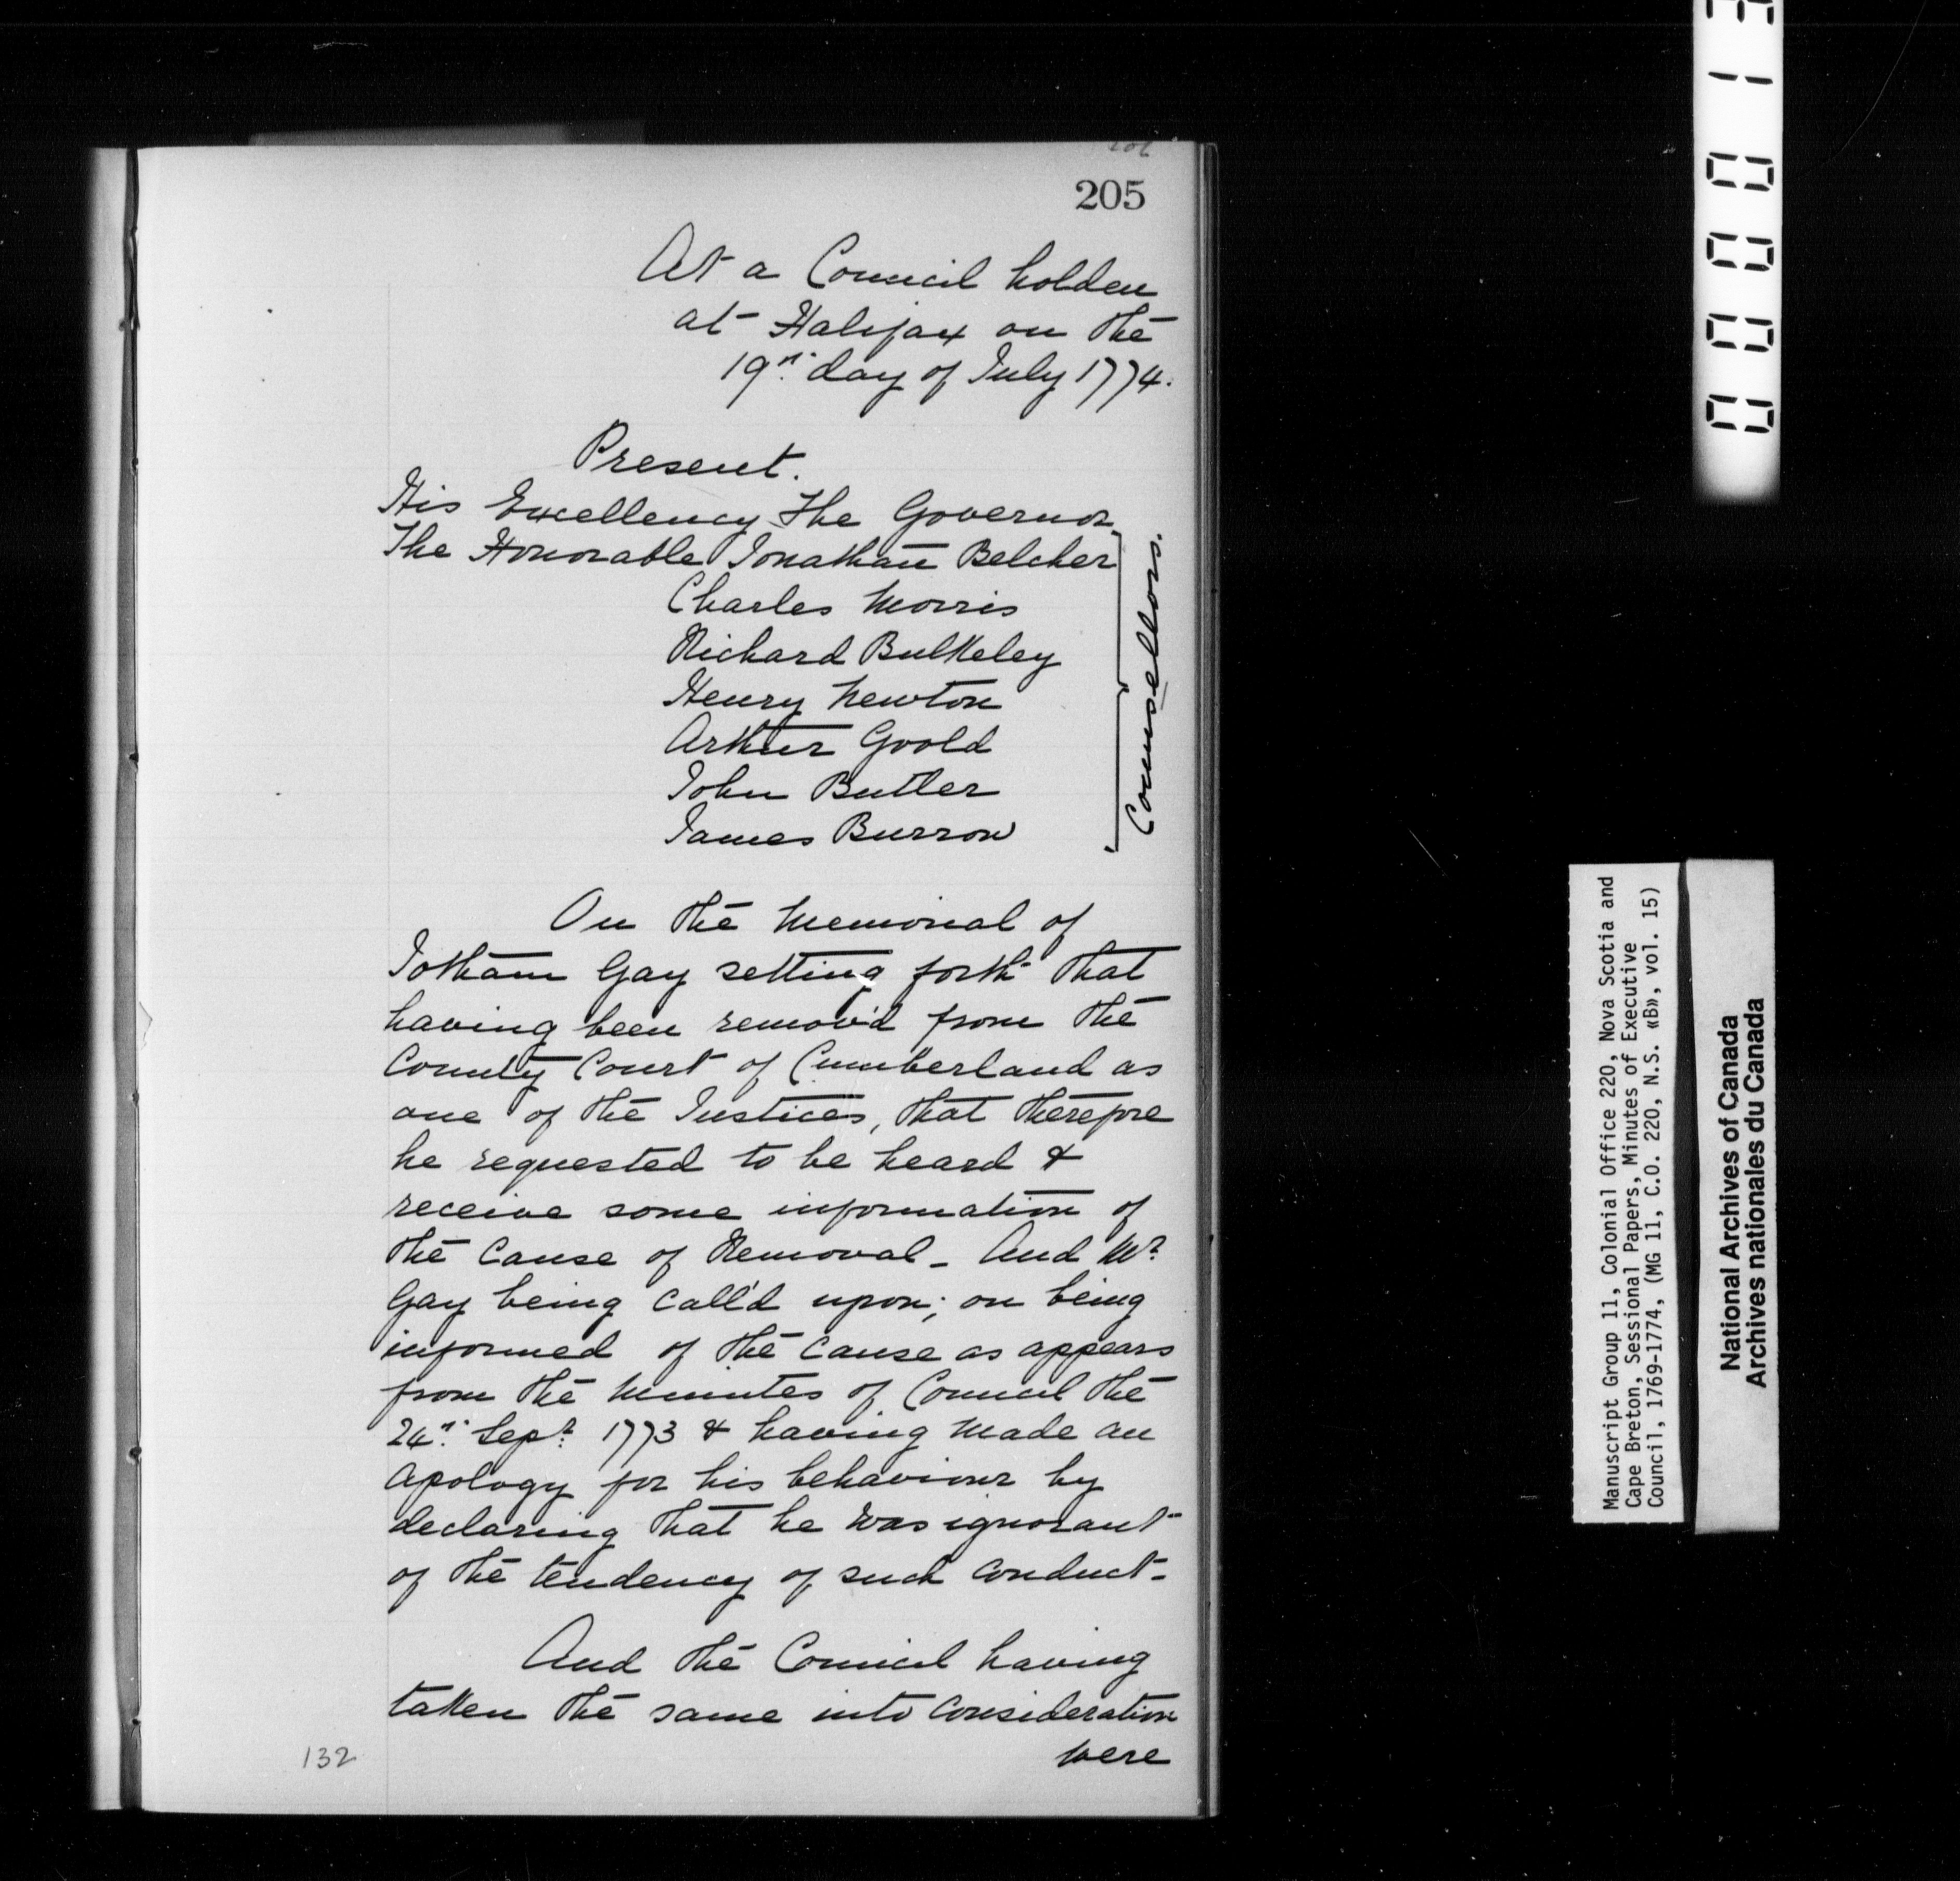 205
At a Council holden
at Halifax on the
19th day of July 1774.
Present.
His Excellency The Governor
The Honorable Jonathan Belcher
Charles Morris
Richard Bulkeley
Henry Newton
Arthur Goold
John Butler
James Burrow
Counsellors.
On the Memorial of
Jotham Gay setting forth that
having been remov'd from the
County Court of Cumberland as
one of the Justices, that therefore
he requested to be heard &
receive some information of
the Cause of Removal_ And Mr.
Gay being call'd upon; on being
informed of the Cause as appears
from the Minutes of Council the
24th Sept. 1773 & having made an
Apology for his behaviour by
declaring that he was ignorant
of the tendency of such Conduct-
And the Council having
taken the same into Consideration
were
132
Manuscript Group 11, Colonial Office 220, Nova Scotia and
Cape Breton, Sessional Papers, Minutes of Executive
Council, 1769-1774, (MG 11, C.O. 220, N.S. «B», vol. 15)
National Archives of Canada
Archives nationales du Canada